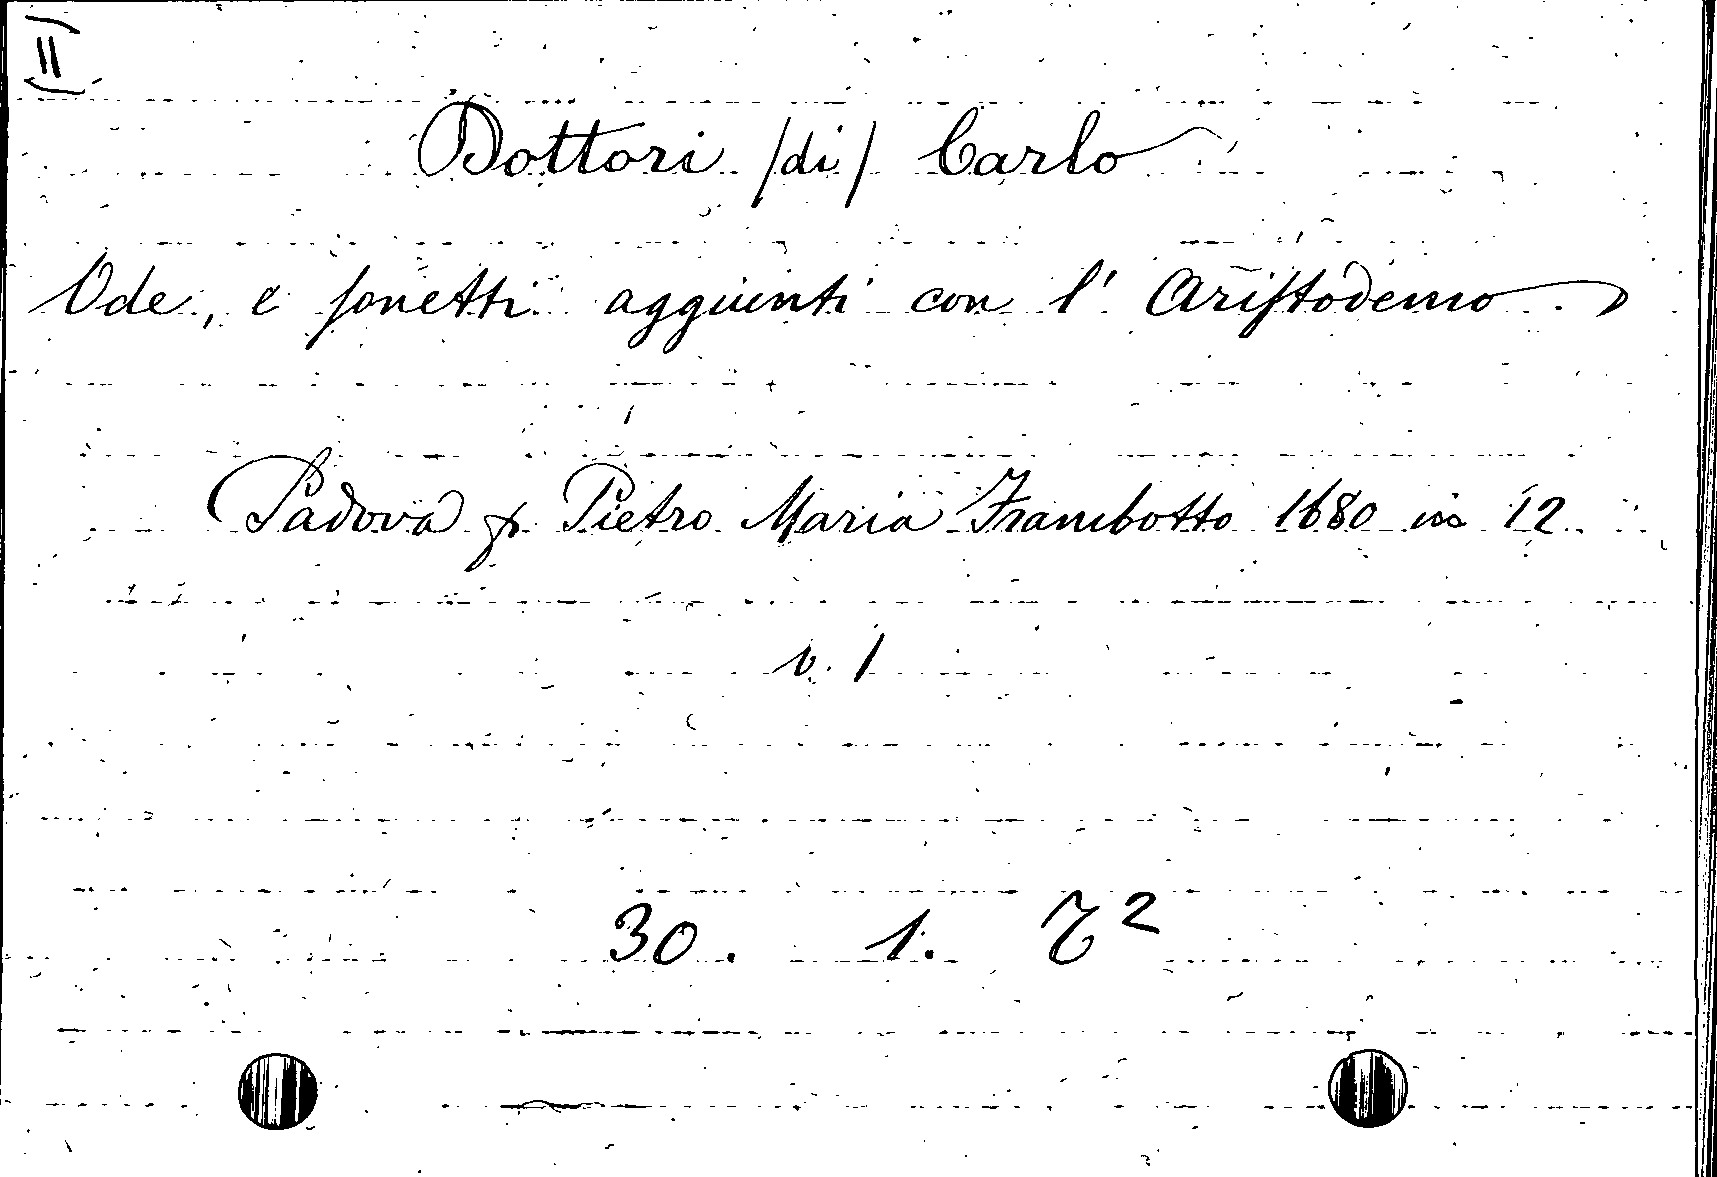 (II)
Dottori /di/ Carlo
Ode, e sonetti aggiunti con l' Aristodemo
Padova p. Pietro Maria Frambotto 1680 in 12
v. 1
30. 1.